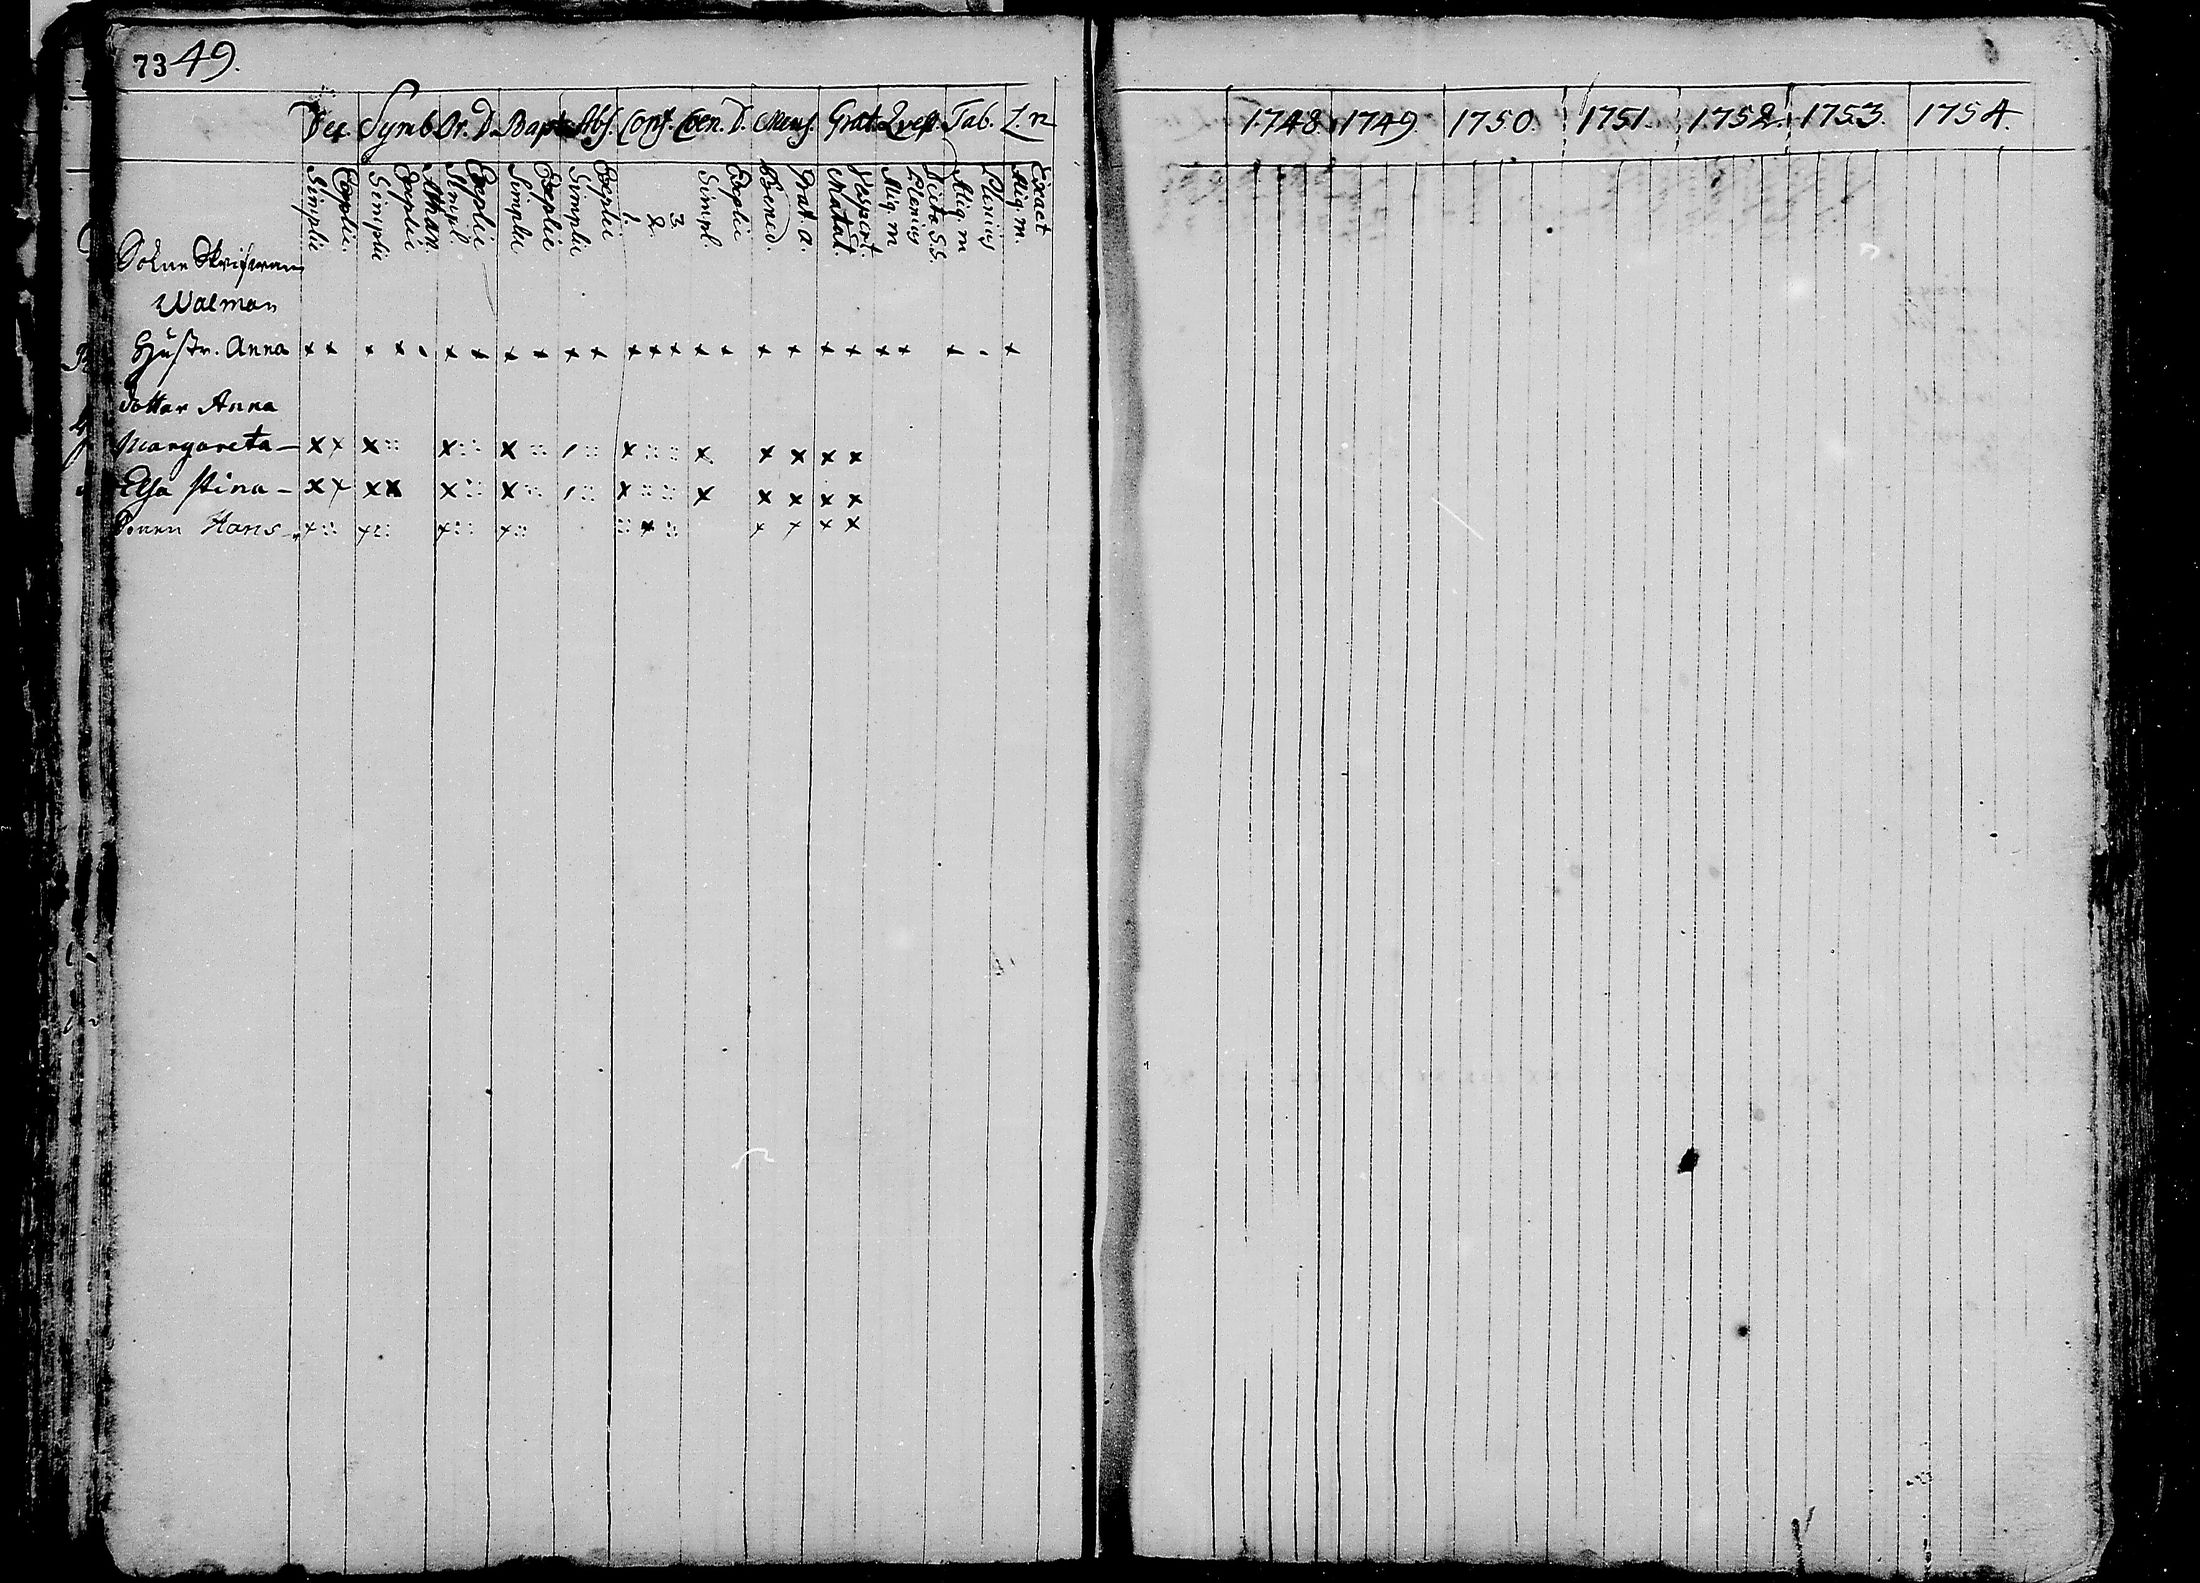 73 49.
Dec Symb. Or. D. Bapt. Abs. Conf. Coen. D. Mens. Grat. Quest. Tab. Ln
Simplic Explic. Simplic Explic Athan. Simpl. Explic Simplic Explic Simplic Explic 1. 2. 3. Simpl Explic Bened. Grat. a. Matut. Vespert. Aliq. m Plenius Dicta S.S. Aliq. m Plenius Aliq. m. Exact
Walman
Hustr. Anna x x x x x x x x x x x x x x x x x x x x x x x
dottar Anna
Margareta - x x x :: x :: x :: :: x :: :: x x x x x
Elsa Stina - x x x x x :: x :: :: x :: :: x x x x x
Hans x :: x :: x :: x :: :: x :: x x x x
1748. 1749. 1750. 1751. 1752. 1753. 1754.